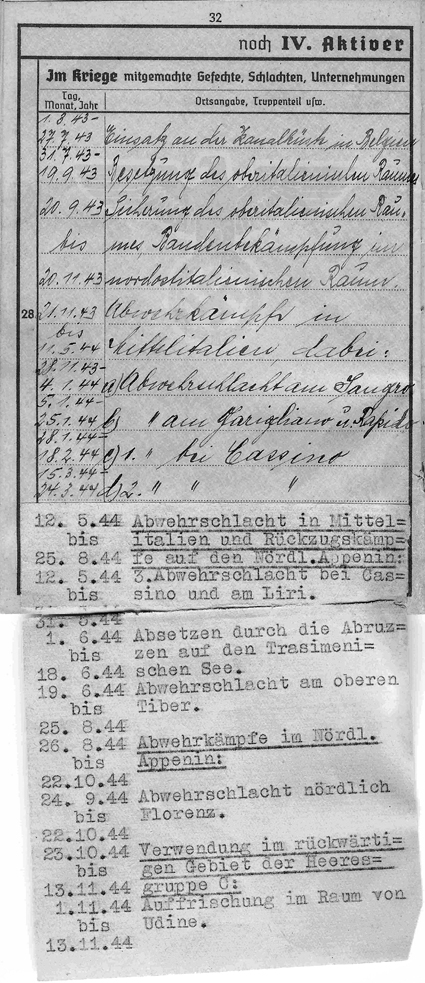 32
noch IV. Aktiver
Im Kriege mitgemachte Gefechte, Schlachten, Unternehmungen
Tag, Monat, Jahr
Ortsangabe, Truppenteil usw.
1.8.43-
27.9.43 Einsatz an der Kanalküste in Belgien
31.7.43-
19.9.43 Besetzung des oberitalienischen Raumes
20.9.43 Sicherung des oberitalienischen Rau-
bis mes, Bandenbekämpfung im
20.11.43 nordostitalienischen Raum.
28
21.11.43 Abwehrkämpfe in
bis
11.5.44 Mittelitalien dabei:
28.11.43-
4.1.44 a) Abwehrschlacht am Sangro
5.1.44-
25.1.44 b) " am Garigliano u. Rapido
28.1.44-
18.2.44 c) 1. " bei Cassino
15.3.44-
24.3.44 d) 2. " " "
12. 5.44 Abwehrschlacht in Mittel=
bis italien und Rückzugskämp=
25. 8.44 fe auf den Nördl.Appenin:
12. 5.44 3.Abwehrschlacht bei Cas=
bis sino und am Liri.
31. 5.44
1. 6.44 Absetzen durch die Abruz=
bis zen auf den Trasimeni=
18. 6.44 schen See.
19. 6.44 Abwehrschlacht am oberen
bis Tiber.
25. 8.44
26. 8.44 Abwehrkämpfe im Nördl.
bis Appenin:
22.10.44
24. 9.44 Abwehrschlacht nördlich
bis Florenz.
22.10.44
23.10.44 Verwendung im rückwärti=
bis gen Gebiet der Heeres=
13.11.44 gruppe C:
1.11.44 Auffrischung im Raum von
bis Udine.
13.11.44